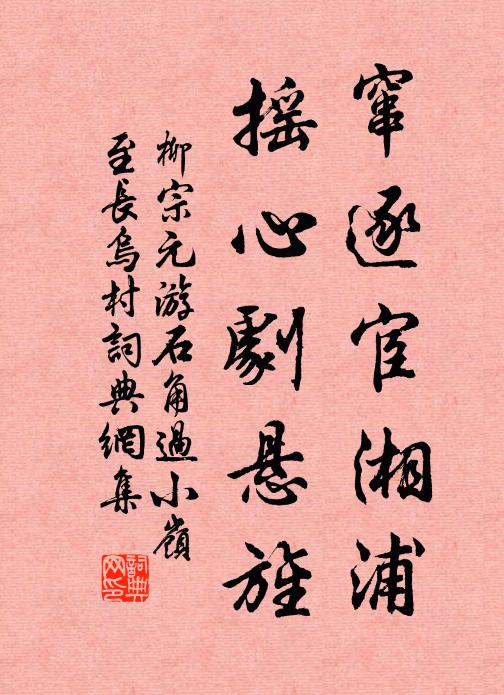 窜逐宦湘浦
摇心剧悬旌
柳宗元游石角過小嶺
至長烏村詞典網集
詞典网印